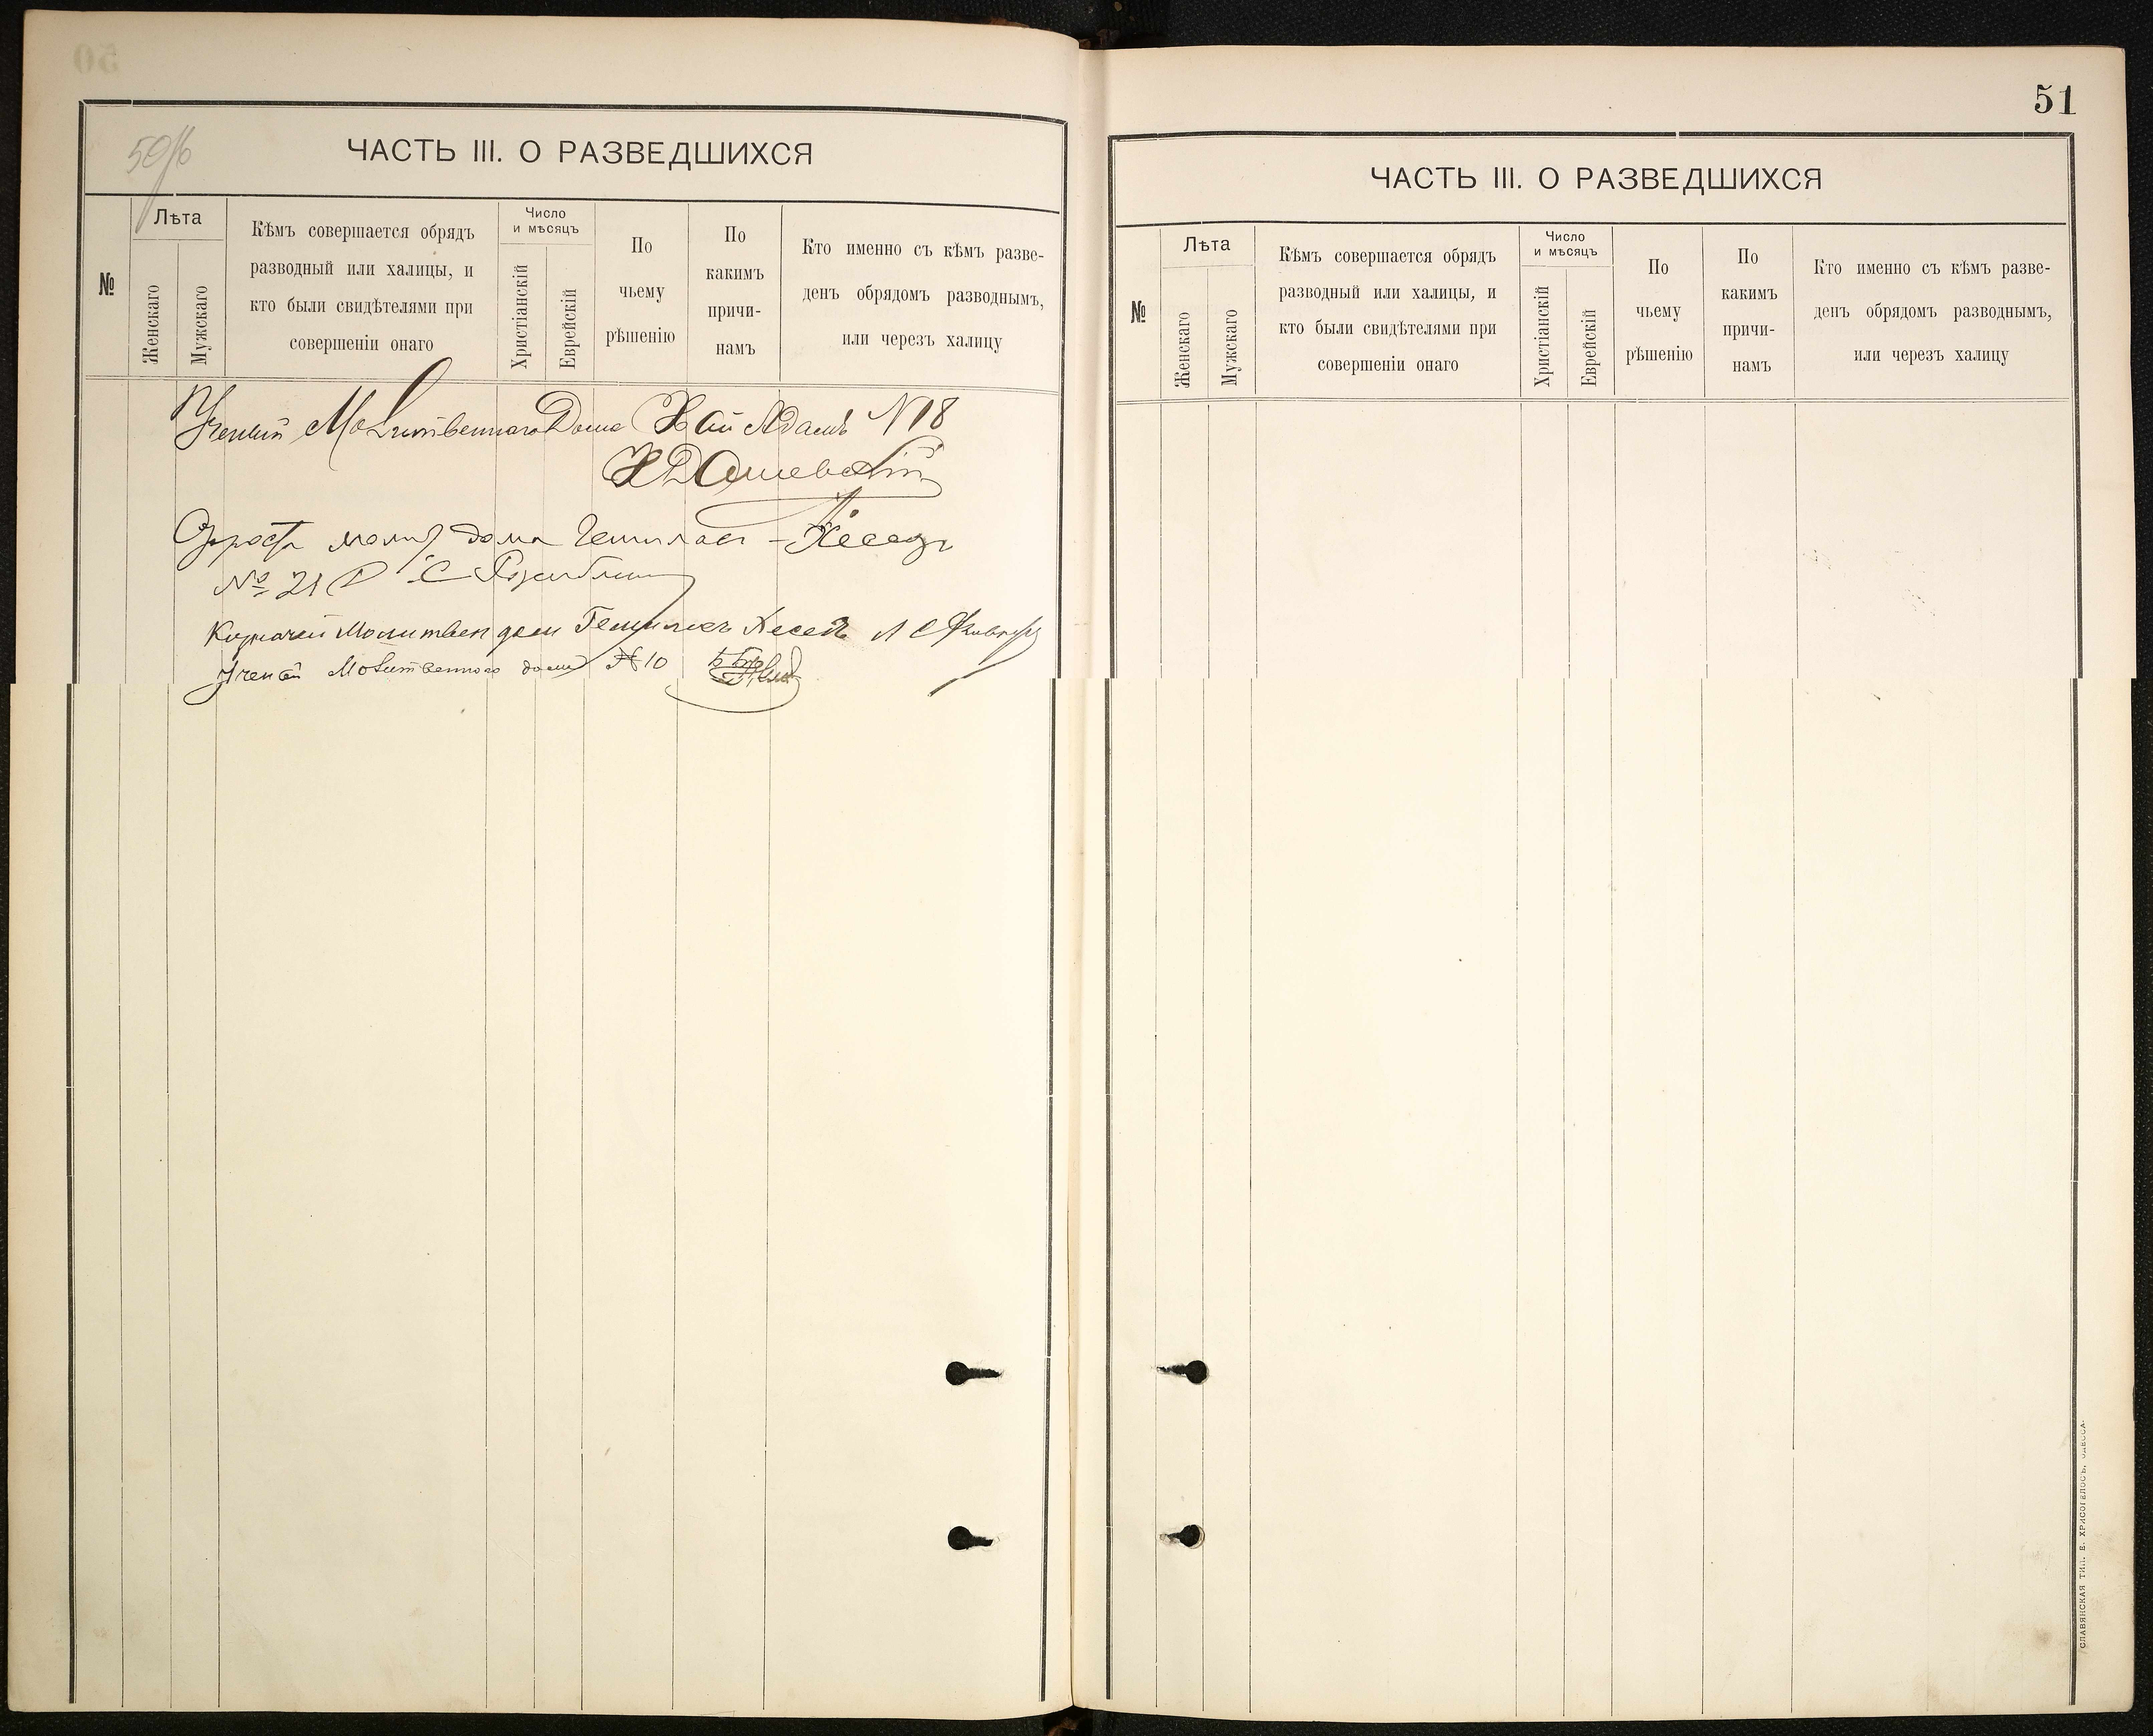 50/б
ЧАСТЬ III. О РАЗВЕДШИХСЯ
№
Лѣта
Женскаго
Мужскаго
Кѣмъ совершается обрядъ
разводный или халицы, и
кто были свидѣтелями при
совершеніи онаго
Число
и мѣсяцъ
Христіанскій
Еврейскій
По
чьему
рѣшенію
По
какимъ
причи-
намъ
Кто именно съ кѣмъ разве-
денъ обрядомъ разводнымъ,
или черезъ халицу
Ученый Молитвенного Дома Хай Адамъ N 18
Х Дашевский
Староста молит дома Гемилас - Хеседъ
№ 21
Казначей Молитвен дом Гемиласъ Хеседъ Л С
Ученый Молитвенного дома № 10
51
ЧАСТЬ III. О РАЗВЕДШИХСЯ
№
Лѣта
Женскаго
Мужскаго
Кѣмъ совершается обрядъ
разводный или халицы, и
кто были свидѣтелями при
совершеніи онаго
Число
и мѣсяцъ
Христіанскій
Еврейскій
По
чьему
рѣшенію
По
какимъ
причи-
намъ
Кто именно съ кѣмъ разве-
денъ обрядомъ разводнымъ,
или черезъ халицу
СЛАВЯНСКАЯ ТИП. Е. ХРИСОГЕЛОСЪ, ОДЕССА.